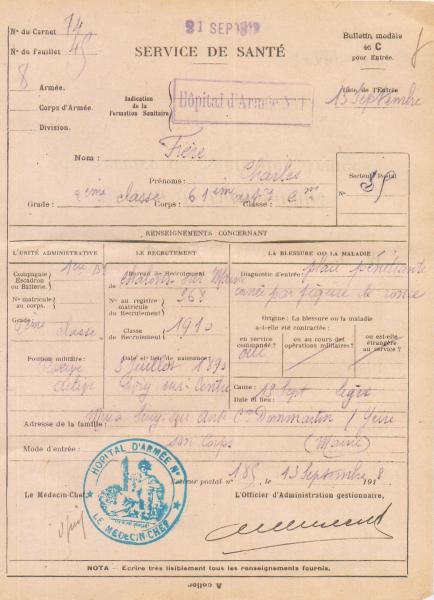 N° du Carnet 14
21 SEP 1918
Bulletin, modèle
46 C
pour Entrée.
N° du Feuillet 45
SERVICE DE SANTÉ
8 Armée.
Corps d'Armée.
Division.
Indication
de la
Formation Sanitaire
Hôpital d'Armée N° 1
Date de l'Entrée
13 Septembre
Nom : Frère
Prénoms : Charles
Secteur Postal
N°
Grade : 2ème classe Corps : 61ème Classe :
RENSEIGNEMENTS CONCERNANT
L'UNITÉ ADMINISTRATIVE
Compagnie
Escadron
ou Batterie.
N° matricule
au corps.
Grade :
2ème classe
Position militaire :
LE RECRUTEMENT
Bureau de Recrutement
de Chalons sur Marne
N° au registre
matricule
du Recrutement 363
Classe
de
Recrutement 1910
Date et lieu de naissance :
5 juillet 1890
LA BLESSURE OU LA MALADIE
Diagnostic d'entrée : plaie pénétrante
par piqure de ronce
Origine : La blessure ou la maladie
a-t-elle été contractée :
en service
commandé ?
oui
ou au cours des
opérations militaires ?
ou est-elle
étrangère
au service ?
Cause :
Date et lieu : 13 Sept
Adresse de la famille : Dommartin
(Marne)
Mode d'entrée : son Corps
HÔPITAL D'ARMÉE N°
LE MÉDECIN CHEF
Secteur postal n° 185, 13 Septembre 1918.
Le Médecin-Chef,
L'Officier d'Administration gestionnaire,
NOTA – Écrire très lisiblement tous les renseignements fournis.
A coller